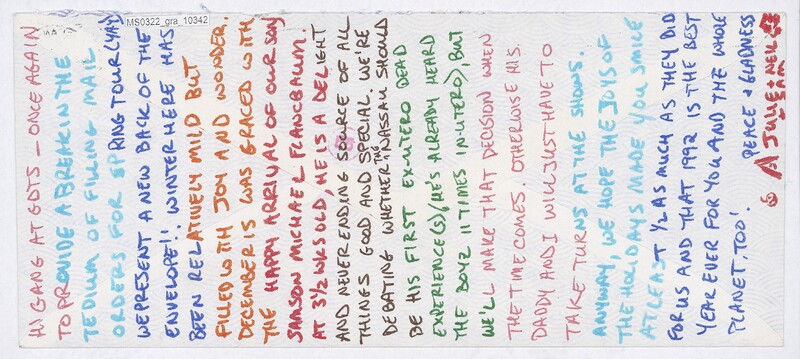 MS0322_gra_10342
HI GANG AT GDTS - ONCE AGAIN
TO PROVIDE A BREAK IN THE
TEDIUM OF FILLING MAIL
ORDERS FOR SPRING TOUR (YAY)
WE PRESENT A NEW BACK OF THE
ENVELOPE!! WINTER HERE HAS
BEEN RELATIVELY MILD BUT
FILLED WITH JOY AND WONDER.
DECEMBER IS WAS GRACED WITH
THE HAPPY ARRIVAL OF OUR SON
SAMSON MICHAEL FLANCBAUM.
AT 3 1/2 WKS OLD, HE IS A DELIGHT
AND NEVER ENDING SOURCE OF ALL
THINGS GOOD AND SPECIAL. WE'RE
DEBATING WHETHER THE NASSAU SHOULD
BE HIS FIRST EX-UTERO DEAD
EXPERIENCE(S) (HE'S ALREADY HEARD
THE BOYZ 11 TIMES IN-UTERO), BUT
WE'LL MAKE THAT DECISION WHEN
THE TIME COMES. OTHERWISE HIS
DADDY AND I WILL JUST HAVE TO
TAKE TURNS AT THE SHOWS.
ANYWAY, WE HOPE THE JOYS OF
THE HOLIDAYS MADE YOU SMILE
AT LEAST 1/2 AS MUCH AS THEY DID
FOR US AND THAT 1992 IS THE BEST
YEAR EVER FOR YOU AND THE WHOLE
PLANET, TOO!
PEACE + GLADNESS
JULIE + NEIL
+ SAM